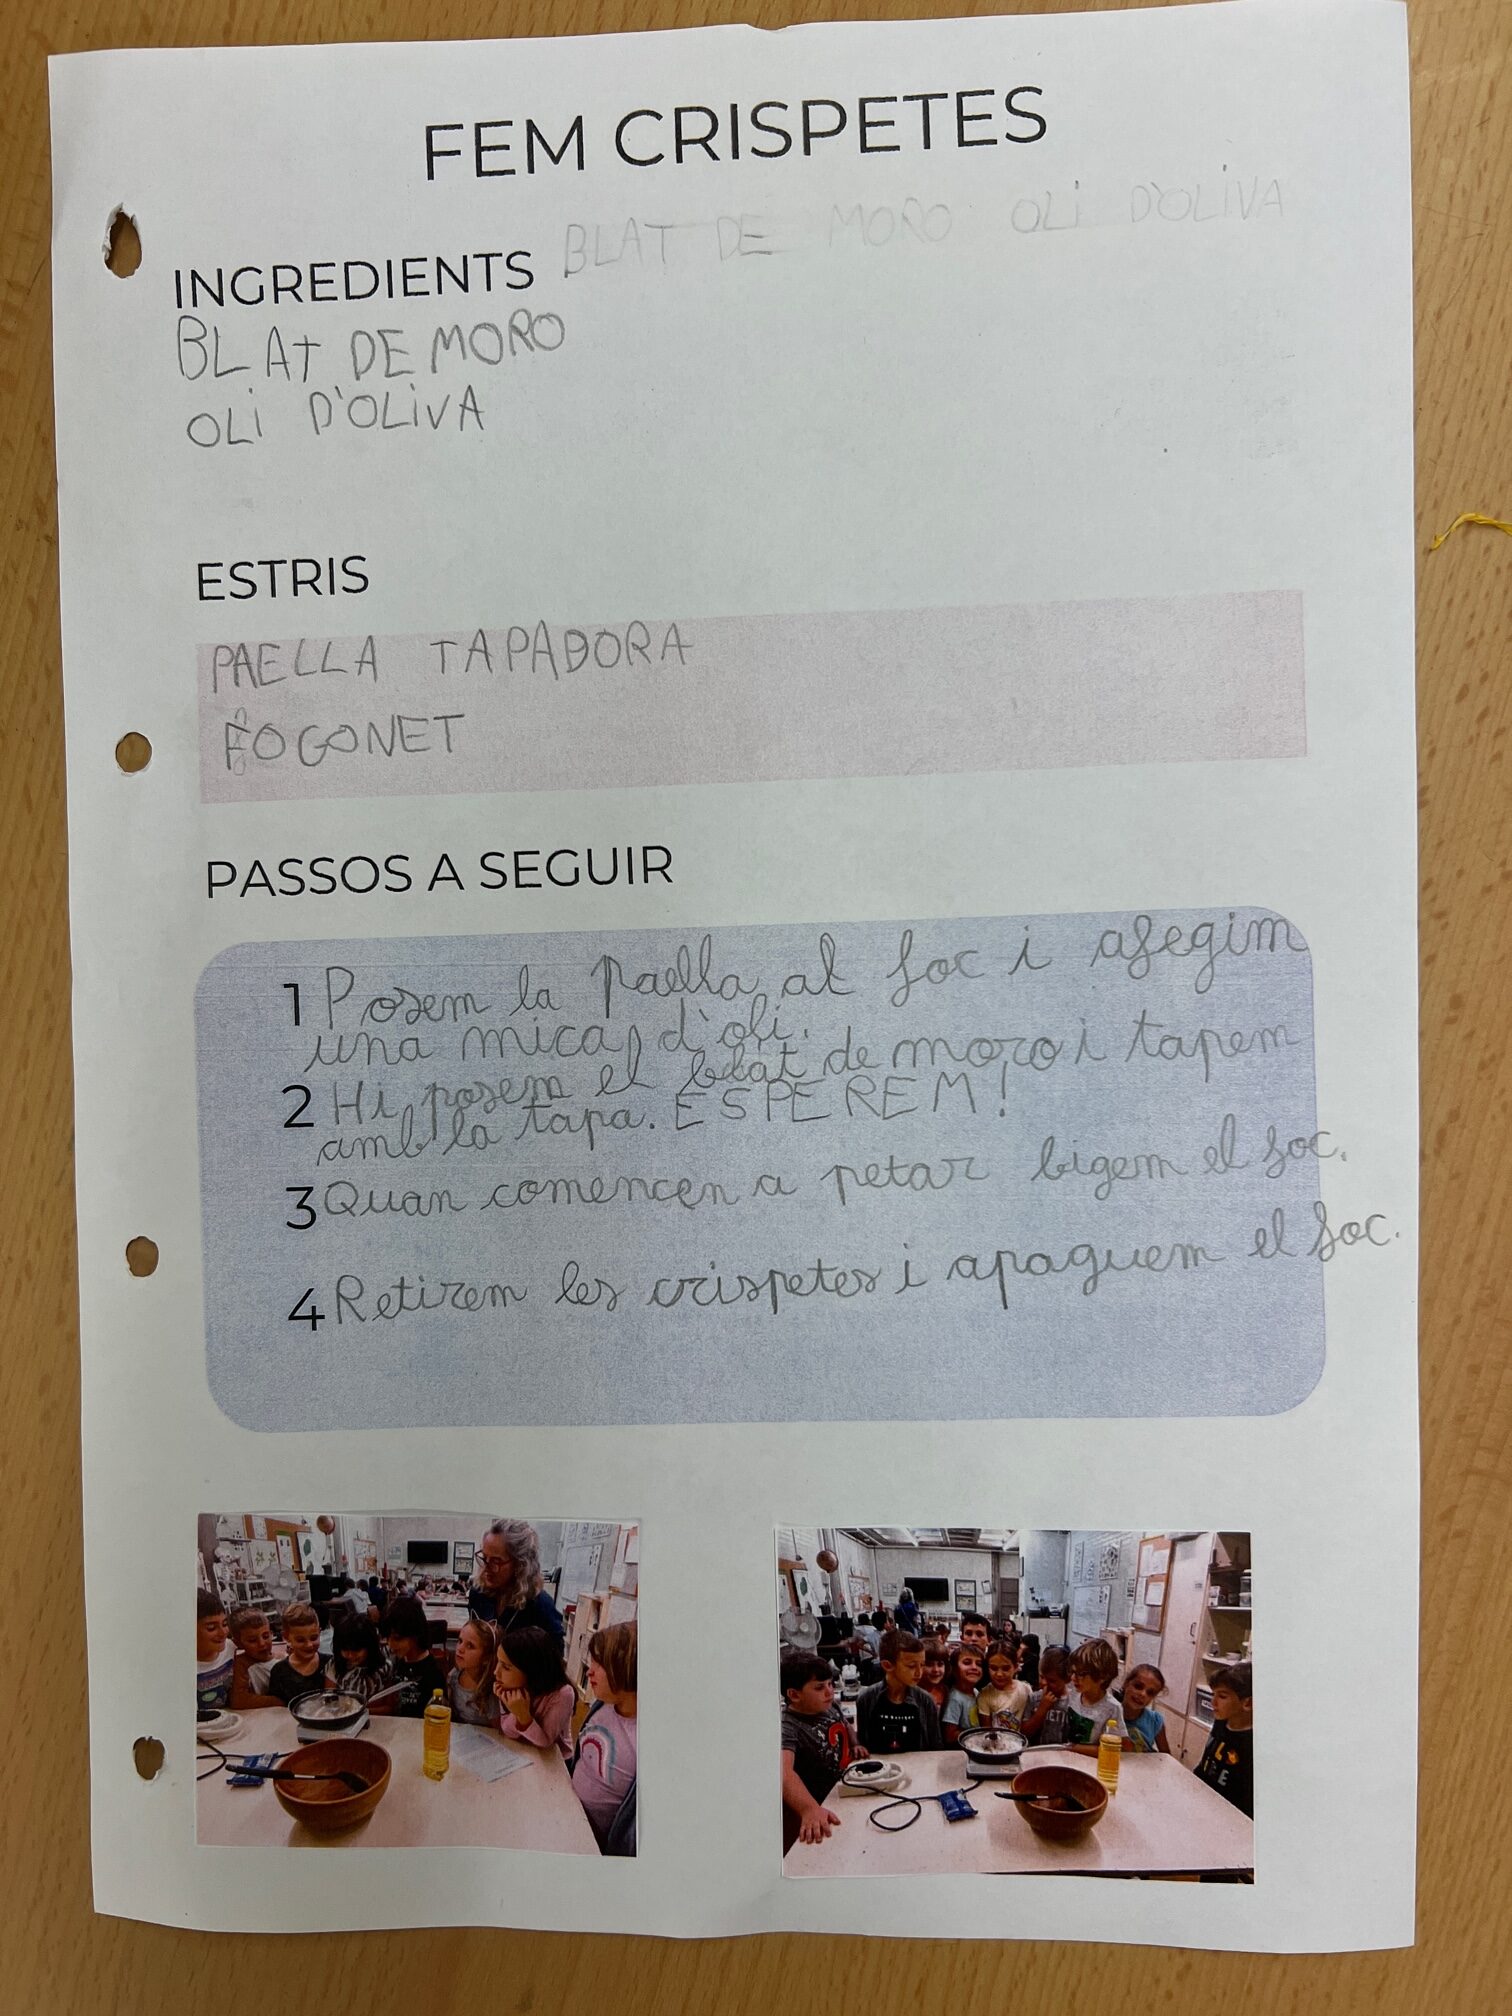 FEM CRISPETES
BLAT DE MORO OLI D'OLIVA
INGREDIENTS
BLAT DE MORO
OLI D'OLIVA
ESTRIS
PAELLA TAPADORA
FOGONET
PASSOS A SEGUIR
1 Posem la paella al foc i afegim
una mica d'oli.
2 Hi posem el blat de moro i tapem
amb la tapa. ESPEREM!
3 Quan comencen a petar bigem el foc.
4 Retirem les crispetes i apaguem el foc.